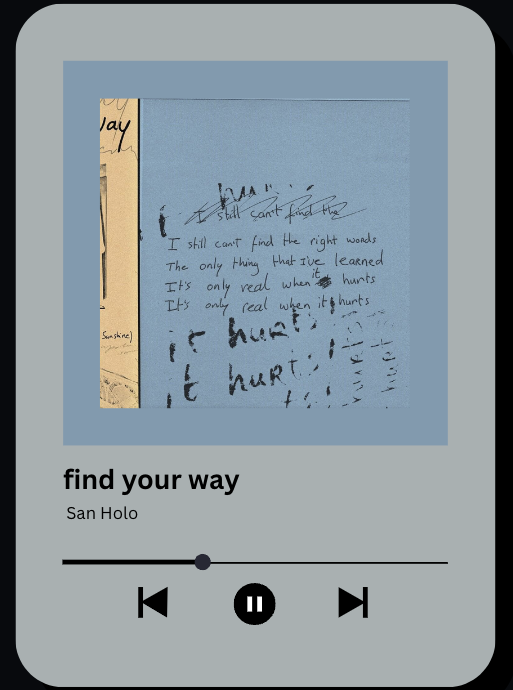 way
Sunshine)
I still can't find the
I still can't find the right words
The only thing that I've learned
It's only real when it hurts
It's only real when it hurts
it hurts
it hurts
find your way
San Holo